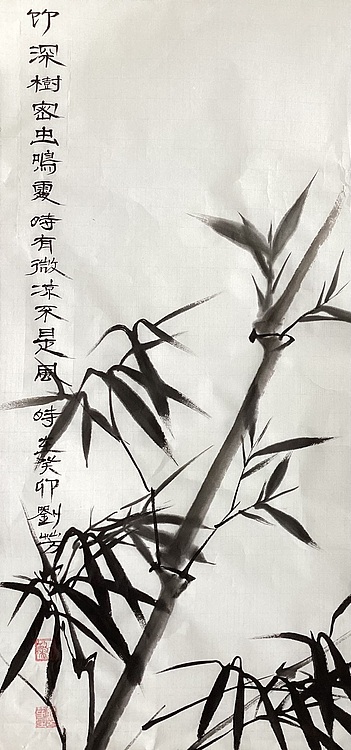 竹深樹密虫鳴處時有微涼不是風時在癸卯劉芳